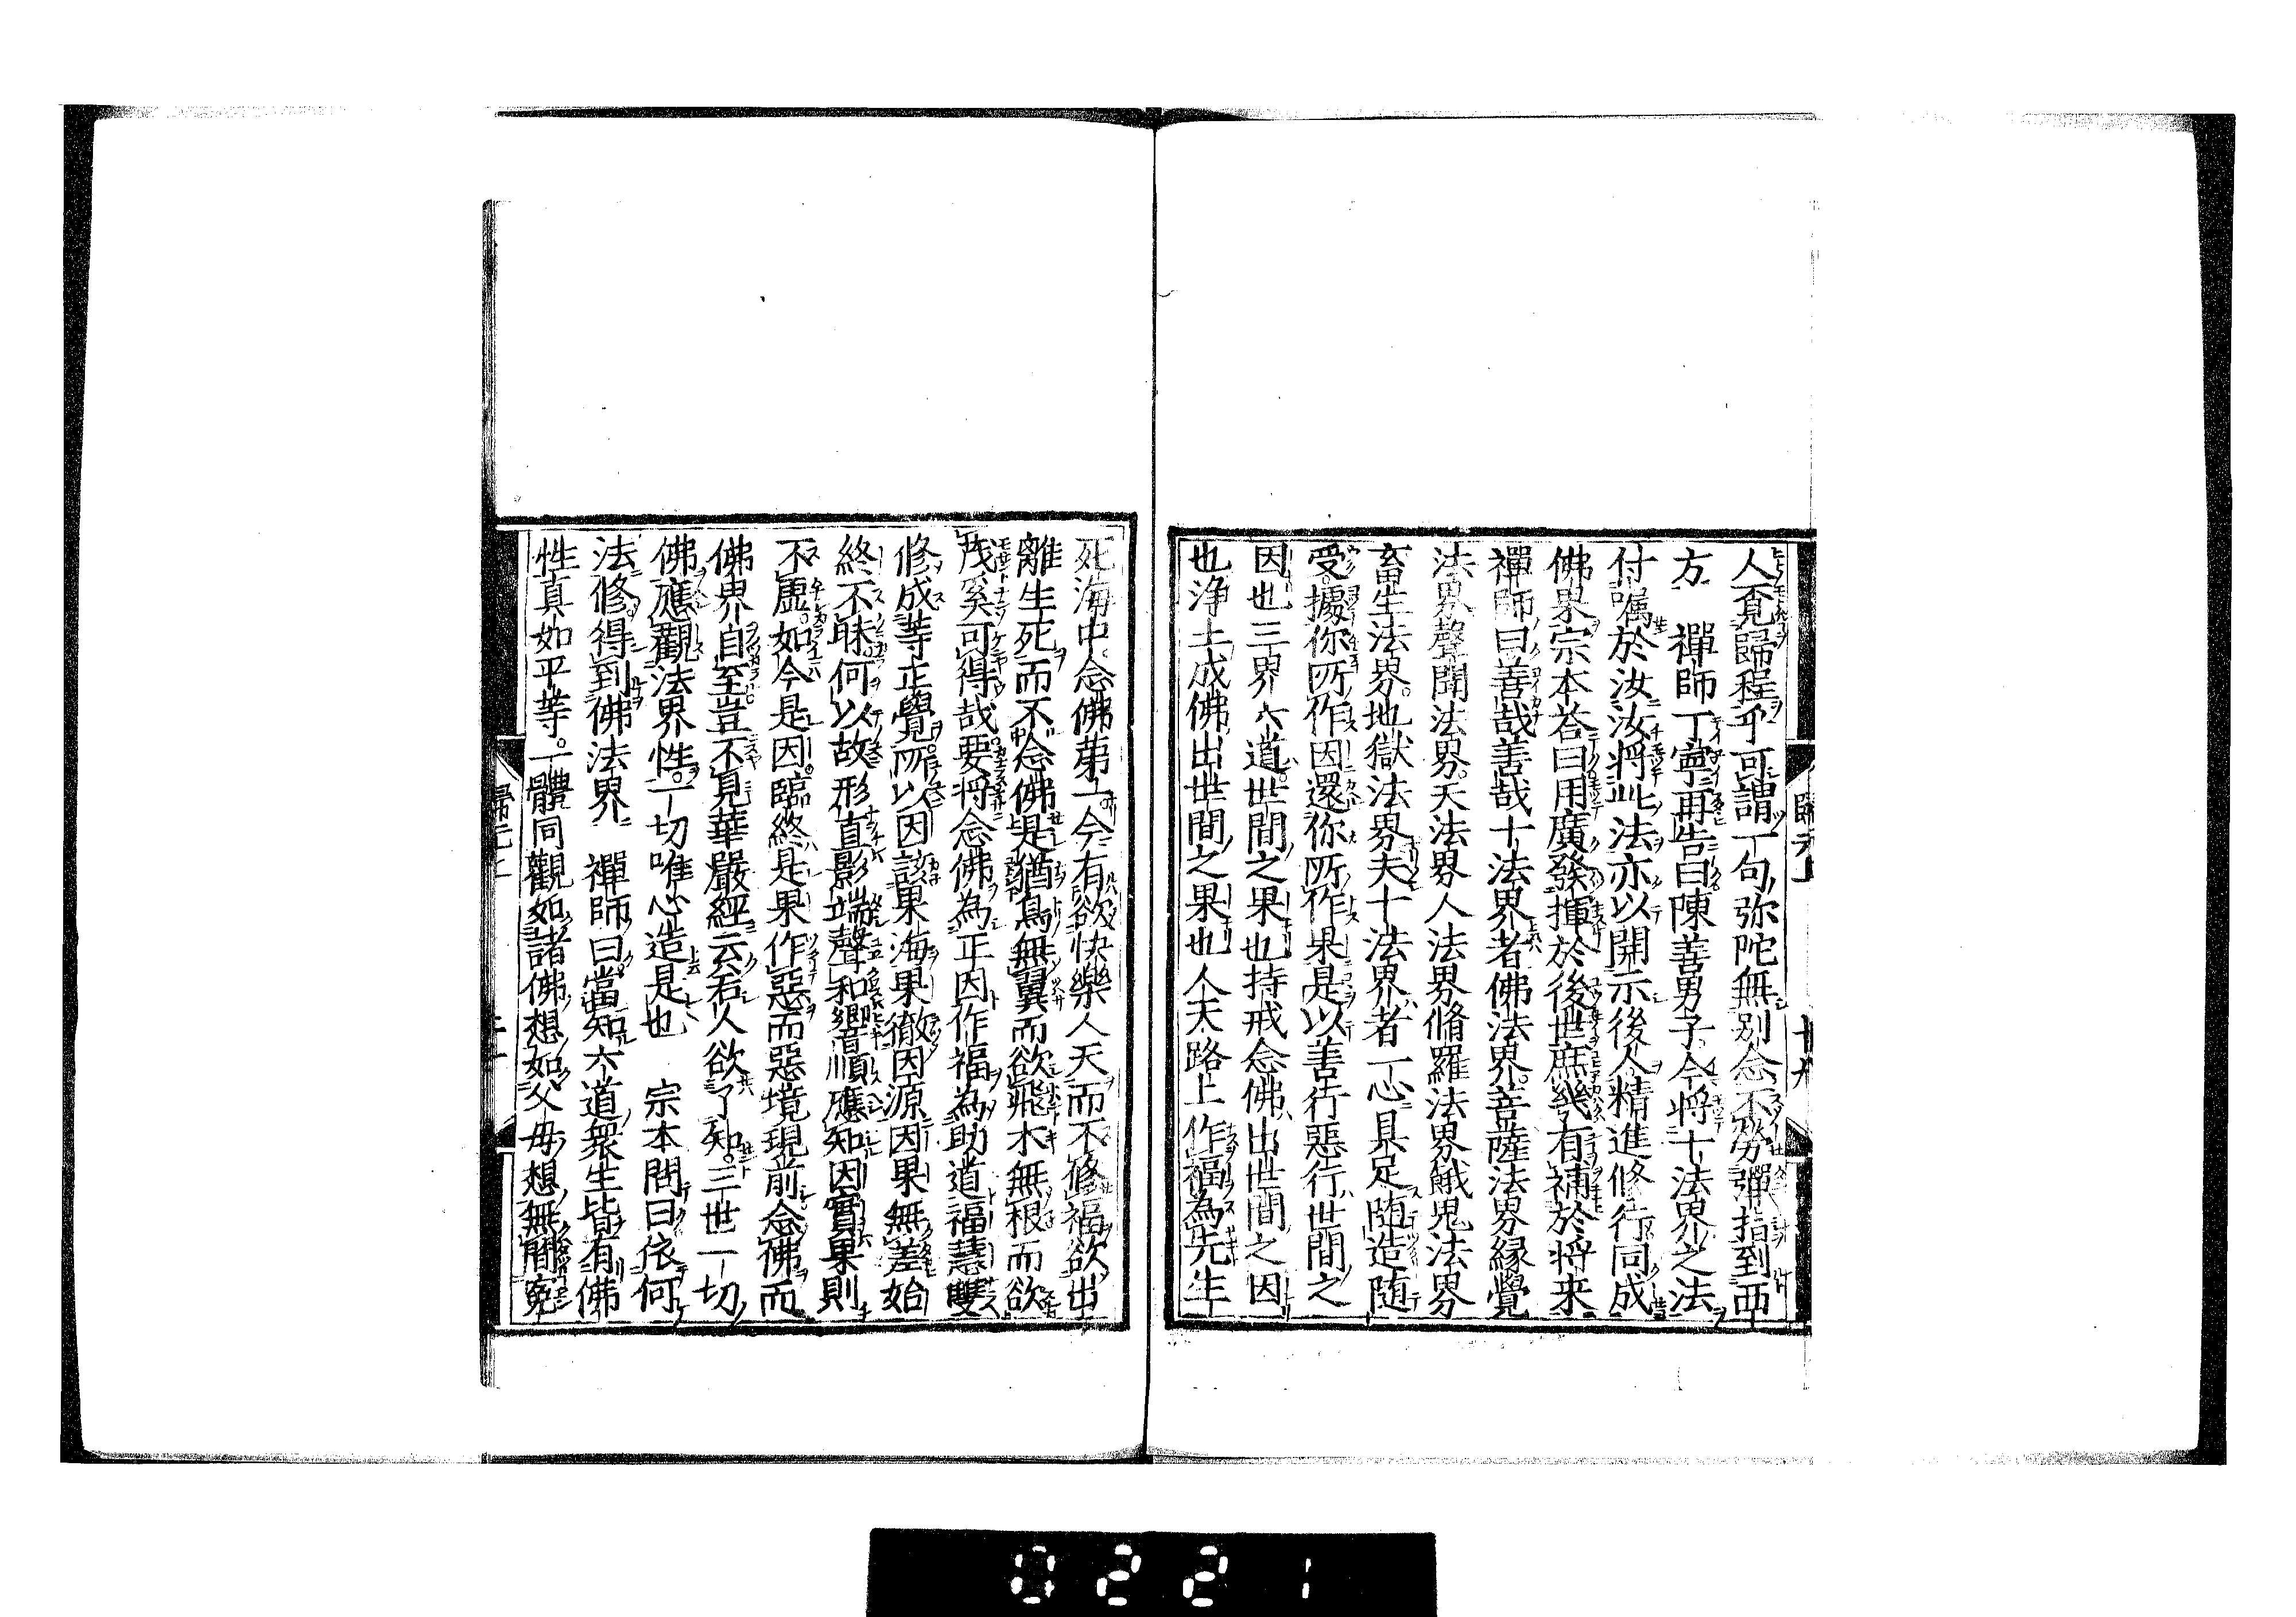 人覔歸程乎可謂一句弥陀無别念不勞彈指到西
方　禪師丁寧再告曰陳善男子今將十法界之法
付囑於汝汝將此法亦以開示後人精進修行同成
佛果宗本荅曰用廣發揮於後世庶幾有補於將来
禪師曰善哉善哉十法界者佛法界菩薩法界縁覺
法界聲聞法界天法界人法界脩羅法界餓鬼法界
畜生法界地獄法界夫十法界者一心具足随造随
受據你所作因還你所作果是以善行惡行世間之
因也三界六道世間之果也持戒念佛出世間之因
也浄土成佛出世間之果也人天路上作福為先生
死海中念佛第一今有欲快樂人天而不修福欲出
離生死而不念佛是猶鳥無翼而欲飛木無根而欲
茂奚可得哉要將念佛為正因作福為助道福慧雙
修成等正覺所以因該果海果徹因源因果無差始
終不昧何以故形直影端聲和響順應知因實果則
不虚如今是因臨終是果作惡而惡境現前念佛而
佛界自至豈不見華嚴經云若人欲了知三世一切
佛應觀法界性一切唯心造是也　宗本問曰依何
法修得到佛法界　禪師曰當知六道衆生皆有佛
性真如平等一體同觀如諸佛想如父母想無間寃
歸元上
0221